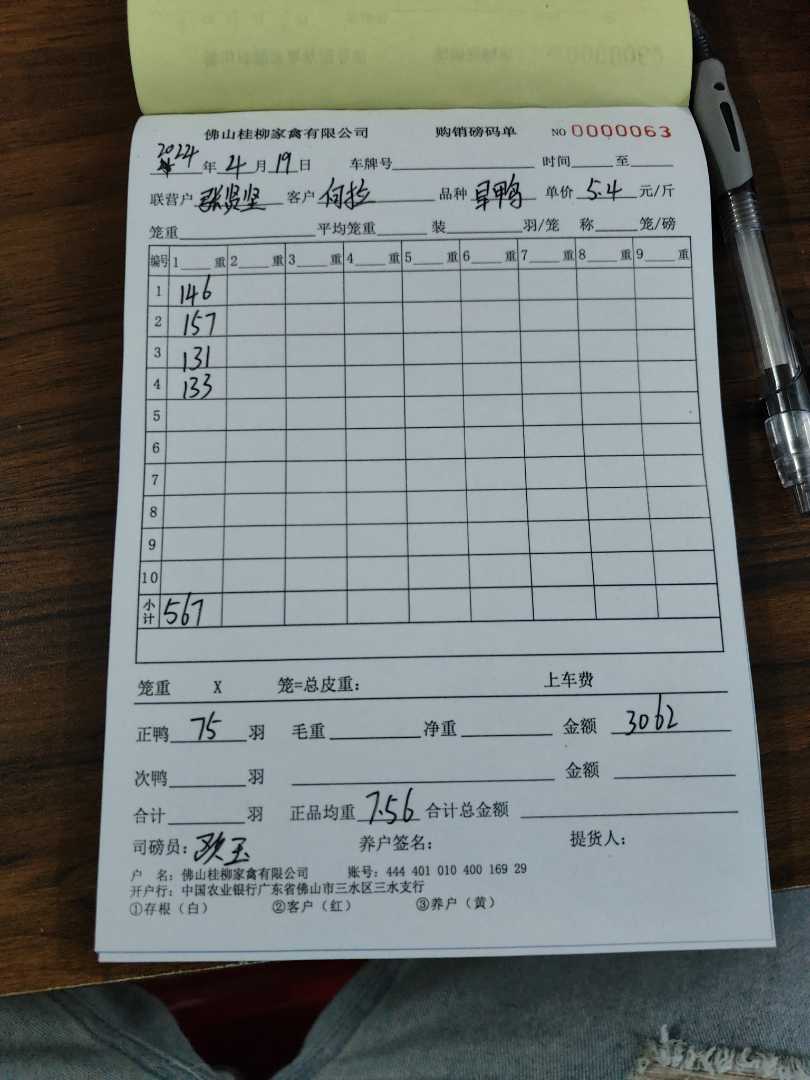 佛山桂柳家禽有限公司 购销磅码单 NO 0000063
2024年4月19日 车牌号 时间 至
联营户 张贤坚 客户 何拉 品种 旱鸭 单价 5.4 元/斤
笼重 平均笼重 装 羽/笼 称 笼/磅
编号 1 重 2 重 3 重 4 重 5 重 6 重 7 重 8 重 9 重
1 146
2 157
3 131
4 133
5
6
7
8
9
10
小计 567
笼重 X 笼=总皮重: 上车费
正鸭 75 羽 毛重 净重 金额 3062
次鸭 羽 金额
合计 羽 正品均重 7.56 合计总金额
司磅员: 欧玉 养户签名: 提货人:
户 名: 佛山桂柳家禽有限公司 账号: 444 401 010 400 169 29
开户行: 中国农业银行广东省佛山市三水区三水支行
①存根（白） ②客户（红） ③养户（黄）